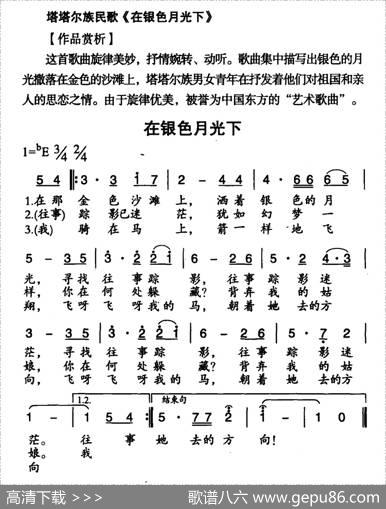 塔塔尔族民歌《在银色月光下》
【作品赏析】
这首歌曲旋律美妙，抒情婉转、动听。歌曲集中描写出银色的月
光撒落在金色的沙滩上，塔塔尔族男女青年在抒发着他们对祖国和亲
人的思恋之情。由于旋律优美，被誉为中国东方的“艺术歌曲”。
在银色月光下
1=ᵇE 3/4 2/4
5 4 ‖: 3 · 3 1 7 | 2 - 2 4 | 4 · 6 6 | 6 6 5 |
1.在那 金 色 沙 滩 上， 洒着 银 色的 月
2.(往事) 踪 影已迷 茫， 犹如 幻 梦 一
3.(我) 骑 在 马 上， 箭一 样 地 飞
5 - 3 5 | 3 · 2 2 1 | 6 - 2 6 | 5 · 5 2 | 4 · 3 |
光， 寻找 往 事 踪 影， 往事 踪 影 迷
样， 你在 何 处 躲 藏？ 背弃 我 的 姑
翔， 飞呀 飞呀 我的 马， 朝着 她 去的方
3 - 3 5 | 3 · 2 2 1 | 6 - 2 6 | 5 · 7 2 |
茫， 寻找 往 事 踪 影， 往事 踪 影迷
娘， 你在 何 处 躲 藏？ 背弃 我 的 姑
向， 飞呀 飞呀 我的 马， 朝着 她 去的方
1.2. 结束句
1 - | 1 5 4 :‖ 5 · 7 7 2 | 1 - | 1 0 ‖
茫。 往 事 她 去的方 向！
娘。 我
向
高清下载 >>> 歌谱八六 www.gepu86.com